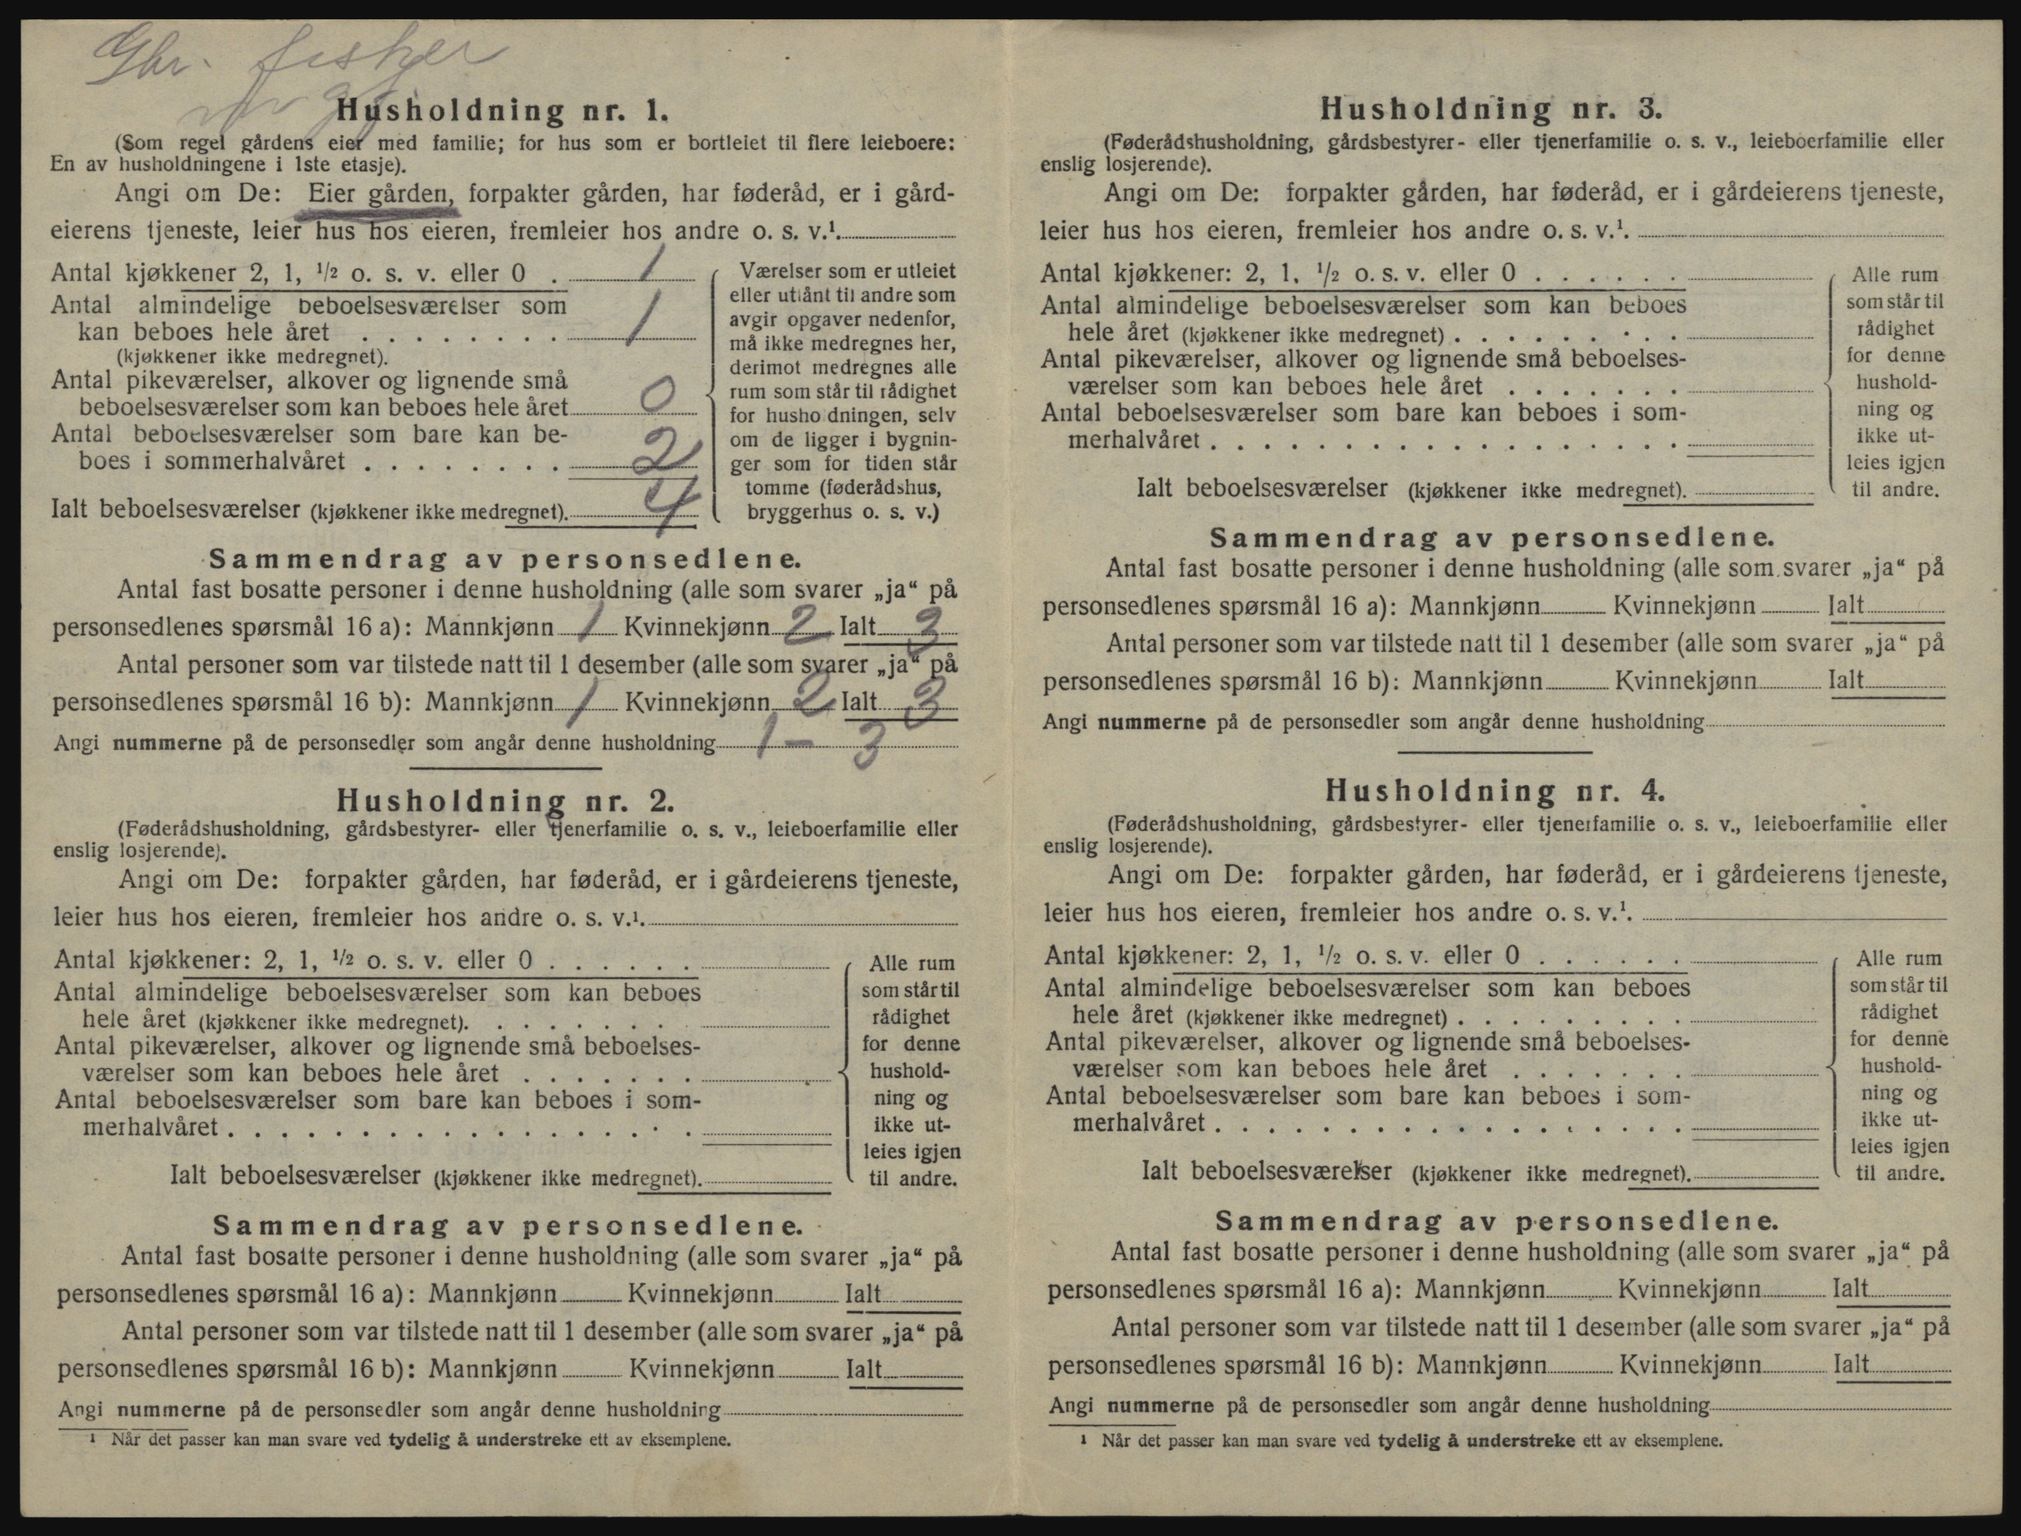 Gbr. fisker
Husholdning nr. 1.
(Som regel gårdens eier med familie; for hus som er bortleiet til flere leieboere:
En av husholdningene i 1ste etasje).
Angi om De: Eier gården, forpakter gården, har føderåd, er i gård-
eierens tjeneste, leier hus hos eieren, fremleier hos andre o. s. v.¹.
Antal kjøkkener 2, 1, ½ o. s. v. eller 0 . 1
Antal almindelige beboelsesværelser som
kan beboes hele året . . . . . . . . 1
(kjøkkener ikke medregnet).
Antal pikeværelser, alkover og lignende små
beboelsesværelser som kan beboes hele året 0
Antal beboelsesværelser som bare kan be-
boes i sommerhalvåret . . . . . . . . 2
Ialt beboelsesværelser (kjøkkener ikke medregnet). 4
Værelser som er utleiet
eller utlånt til andre som
avgir opgaver nedenfor,
må ikke medregnes her,
derimot medregnes alle
rum som står til rådighet
for husho dningen, selv
om de ligger i bygnin-
ger som for tiden står
tomme (føderådshus,
bryggerhus o. s. v.)
Sammendrag av personsedlene.
Antal fast bosatte personer i denne husholdning (alle som svarer „ja“ på
personsedlenes spørsmål 16 a): Mannkjønn 1 Kvinnekjønn 2 Ialt 3
Antal personer som var tilstede natt til 1 desember (alle som svarer „ja“ på
personsedlenes spørsmål 16 b): Mannkjønn 1 Kvinnekjønn 2 Ialt 3
Angi nummerne på de personsedler som angår denne husholdning 1 - 3
Husholdning nr. 2.
(Føderådshusholdning, gårdsbestyrer- eller tjenerfamilie o. s. v., leieboerfamilie eller
enslig losjerende).
Angi om De: forpakter gården, har føderåd, er i gårdeierens tjeneste,
leier hus hos eieren, fremleier hos andre o. s. v.¹.
Antal kjøkkener: 2, 1, ½ o. s. v. eller 0 . . . . . .
Antal almindelige beboelsesværelser som kan beboes
hele året (kjøkkener ikke medregnet). . . . . . . .
Antal pikeværelser, alkover og lignende små beboelses-
værelser som kan beboes hele året . . . . . . .
Antal beboelsesværelser som bare kan beboes i som-
merhalvåret . . . . . . . . . . . . . . . . . .
Ialt beboelsesværelser (kjøkkener ikke medregnet).
Alle rum
som står til
rådighet
for denne
hushold-
ning og
ikke ut-
leies igjen
til andre.
Sammendrag av personsedlene.
Antal fast bosatte personer i denne husholdning (alle som svarer „ja“ på
personsedlenes spørsmål 16 a): Mannkjønn Kvinnekjønn Ialt
Antal personer som var tilstede natt til 1 desember (alle som svarer „ja“ på
personsedlenes spørsmål 16 b): Mannkjønn Kvinnekjønn Ialt
Angi nummerne på de personsedler som angår denne husholdning
¹ Når det passer kan man svare ved tydelig å understreke ett av eksemplene.
Husholdning nr. 3.
(Føderådshusholdning, gårdsbestyrer- eller tjenerfamilie o. s. v., leieboerfamilie eller
enslig losjerende).
Angi om De: forpakter gården, har føderåd, er i gårdeierens tjeneste,
leier hus hos eieren, fremleier hos andre o. s. v.¹.
Antal kjøkkener: 2, 1, ½ o. s. v. eller 0 . . . . . .
Antal almindelige beboelsesværelser som kan beboes
hele året (kjøkkener ikke medregnet) . . . . . . . . .
Antal pikeværelser, alkover og lignende små beboelses-
værelser som kan beboes hele året . . . . . . .
Antal beboelsesværelser som bare kan beboes i som-
merhalvåret . . . . . . . . . . . . . . . . . .
Ialt beboelsesværelser (kjøkkener ikke medregnet).
Alle rum
som står til
rådighet
for denne
hushold-
ning og
ikke ut-
leies igjen
til andre.
Sammendrag av personsedlene.
Antal fast bosatte personer i denne husholdning (alle som svarer „ja“ på
personsedlenes spørsmål 16 a): Mannkjønn Kvinnekjønn Ialt
Antal personer som var tilstede natt til 1 desember (alle som svarer „ja“ på
personsedlenes spørsmål 16 b): Mannkjønn Kvinnekjønn Ialt
Angi nummerne på de personsedler som angår denne husholdning
Husholdning nr. 4.
(Føderådshusholdning, gårdsbestyrer- eller tjenerfamilie o. s. v., leieboerfamilie eller
enslig losjerende).
Angi om De: forpakter gården, har føderåd, er i gårdeierens tjeneste,
leier hus hos eieren, fremleier hos andre o. s. v.¹.
Antal kjøkkener: 2, 1, ½ o. s. v. eller 0 . . . . . .
Antal almindelige beboelsesværelser som kan beboes
hele året (kjøkkener ikke medregnet) . . . . . . . . .
Antal pikeværelser, alkover og lignende små beboelses-
værelser som kan beboes hele året . . . . . . .
Antal beboelsesværelser som bare kan beboes i som-
merhalvåret . . . . . . . . . . . . . . . . . .
Ialt beboelsesværelser (kjøkkener ikke medregnet).
Alle rum
som står til
rådighet
for denne
hushold-
ning og
ikke ut-
leies igjen
til andre.
Sammendrag av personsedlene.
Antal fast bosatte personer i denne husholdning (alle som svarer „ja“ på
personsedlenes spørsmål 16 a): Mannkjønn Kvinnekjønn Ialt
Antal personer som var tilstede natt til 1 desember (alle som svarer „ja“ på
personsedlenes spørsmål 16 b): Mannkjønn Kvinnekjønn Ialt
Angi nummerne på de personsedler som angår denne husholdning
¹ Når det passer kan man svare ved tydelig å understreke ett av eksemplene.